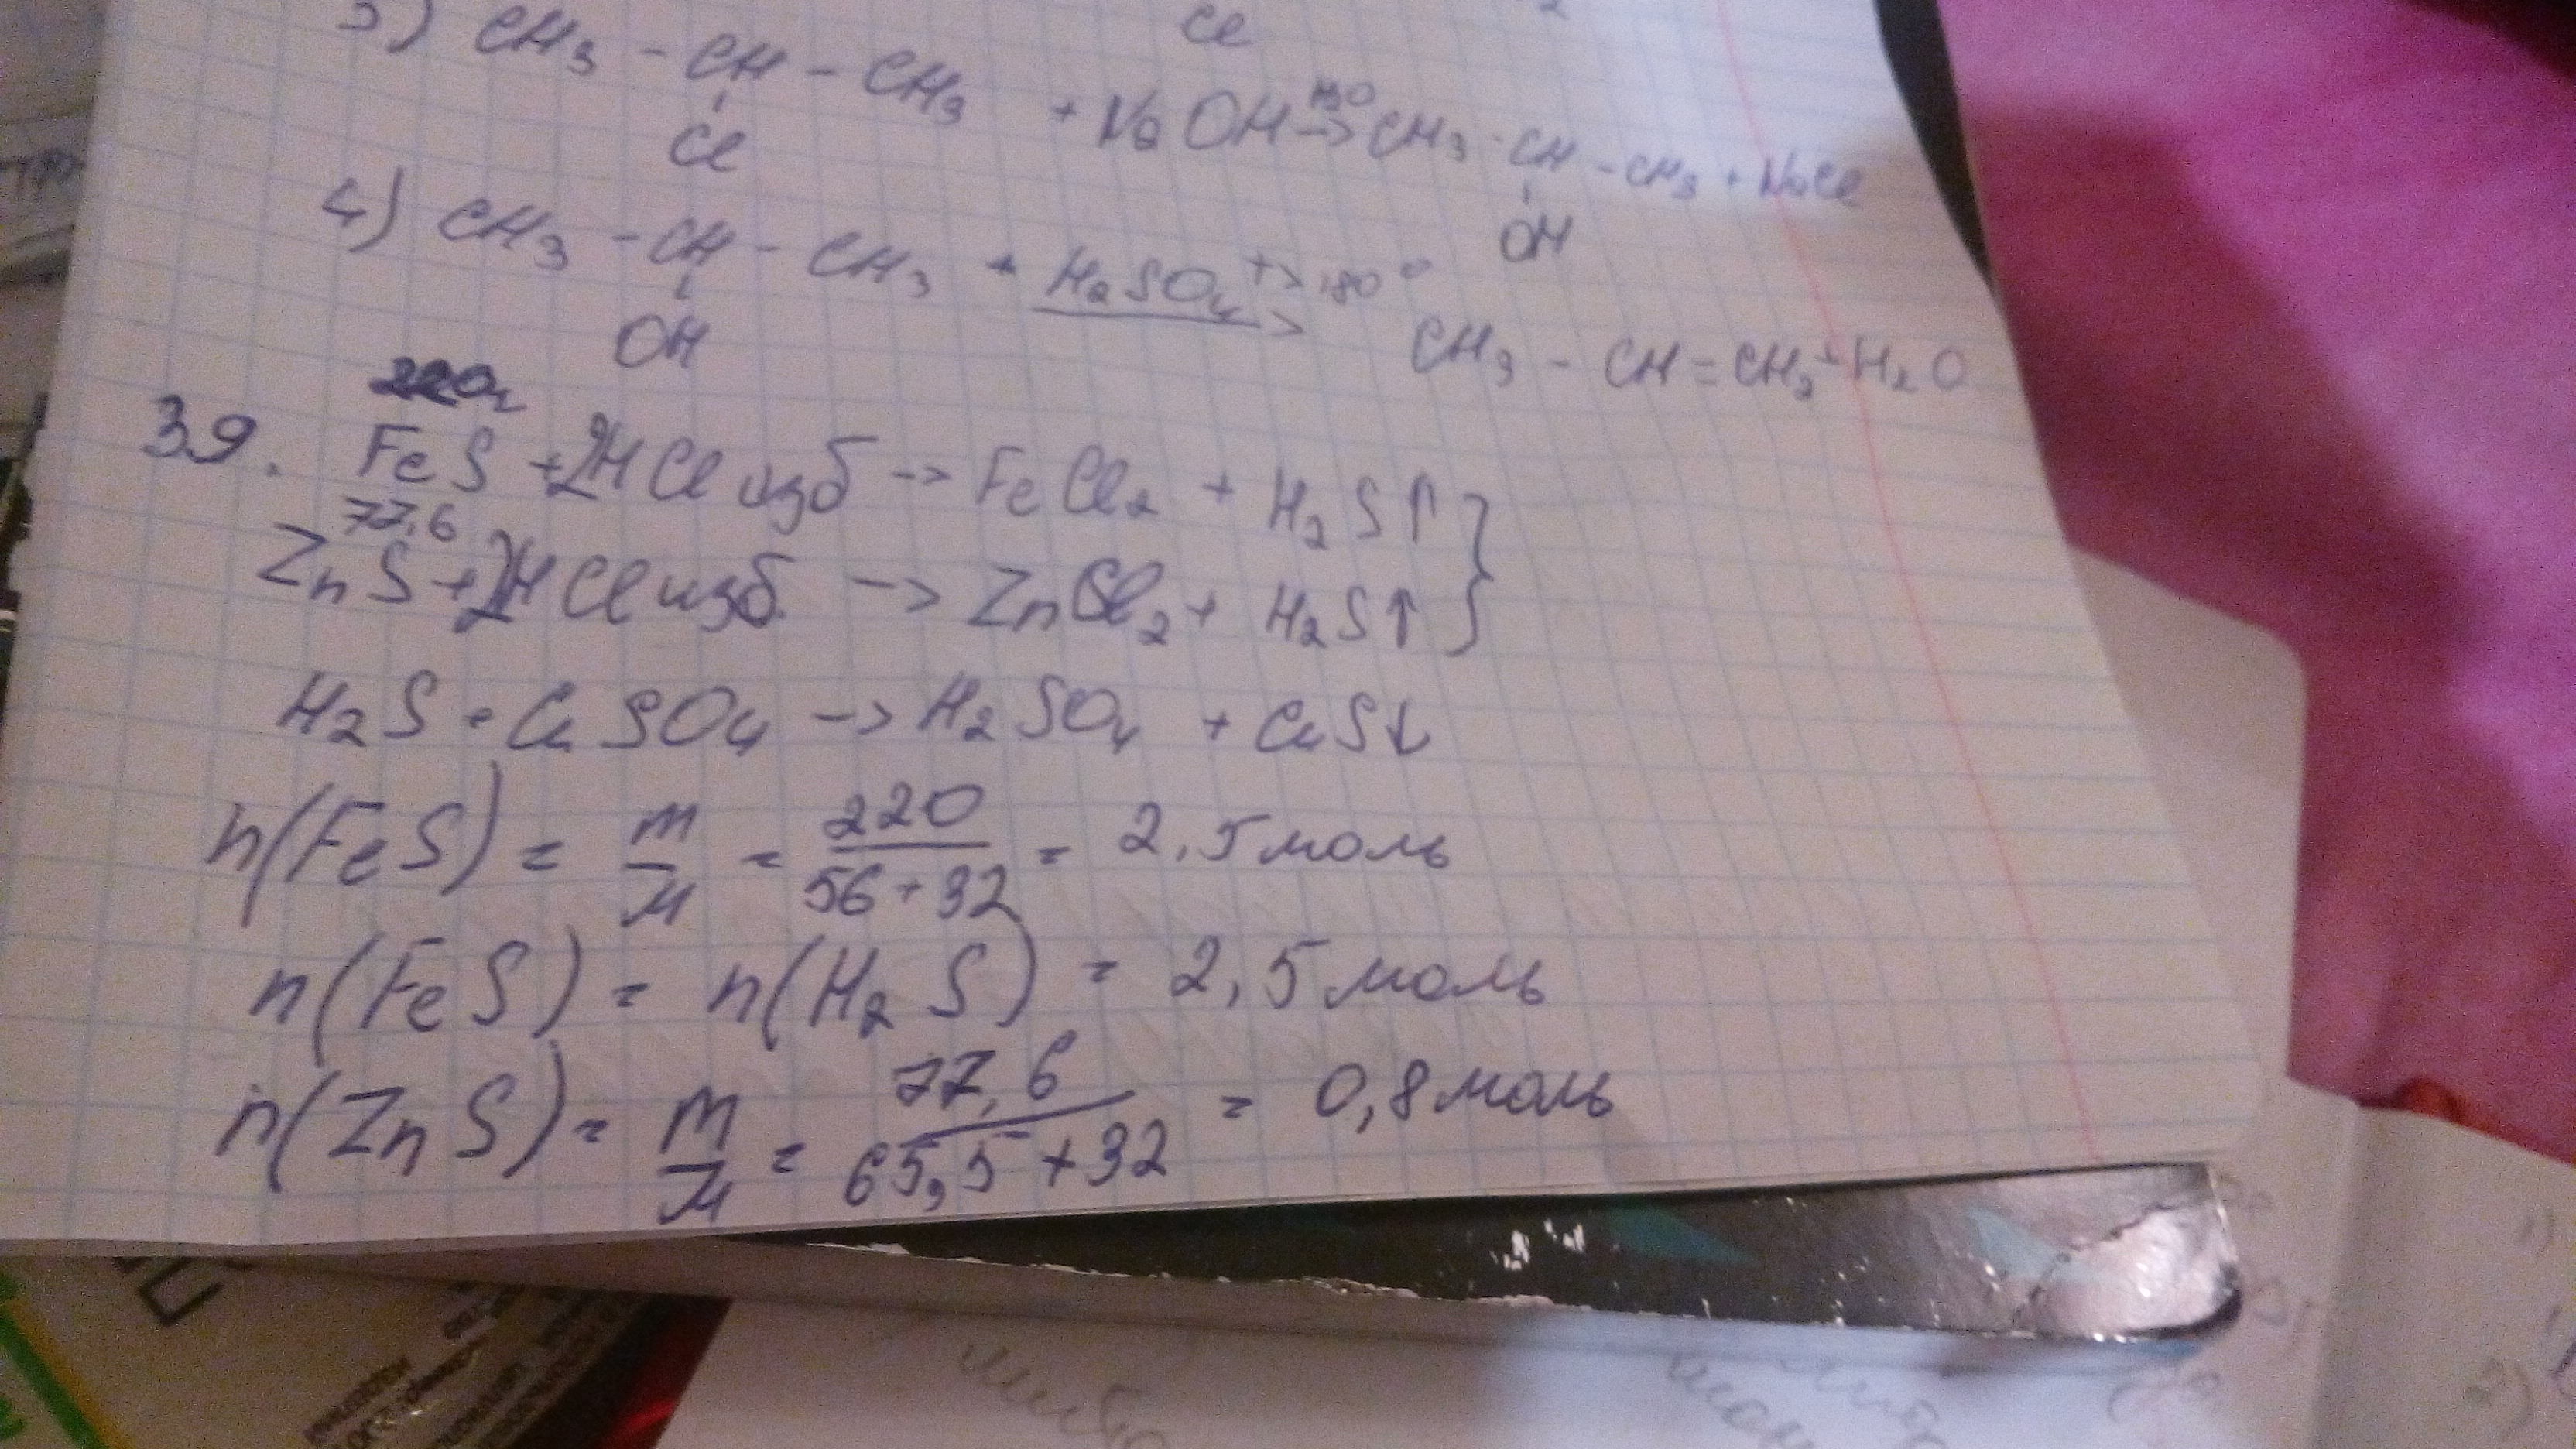 Cl
3) CH3 - CH - CH3 + NaOH H2O → CH3 - CH - CH3 + NaCl
Cl
OH
4) CH3 - CH - CH3 + H2SO4 t > 180° → CH3 - CH = CH2 + H2O
OH
220г
39. FeS + 2HCl изб → FeCl2 + H2S↑ }
77,6
ZnS + 2HCl изб. → ZnCl2 + H2S↑ }
H2S + CuSO4 → H2SO4 + CuS↓
n(FeS) = m/M = 220/56+32 = 2,5 моль
n(FeS) = n(H2S) = 2,5 моль
n(ZnS) = m/M = 77,6/65,5+32 = 0,8 моль